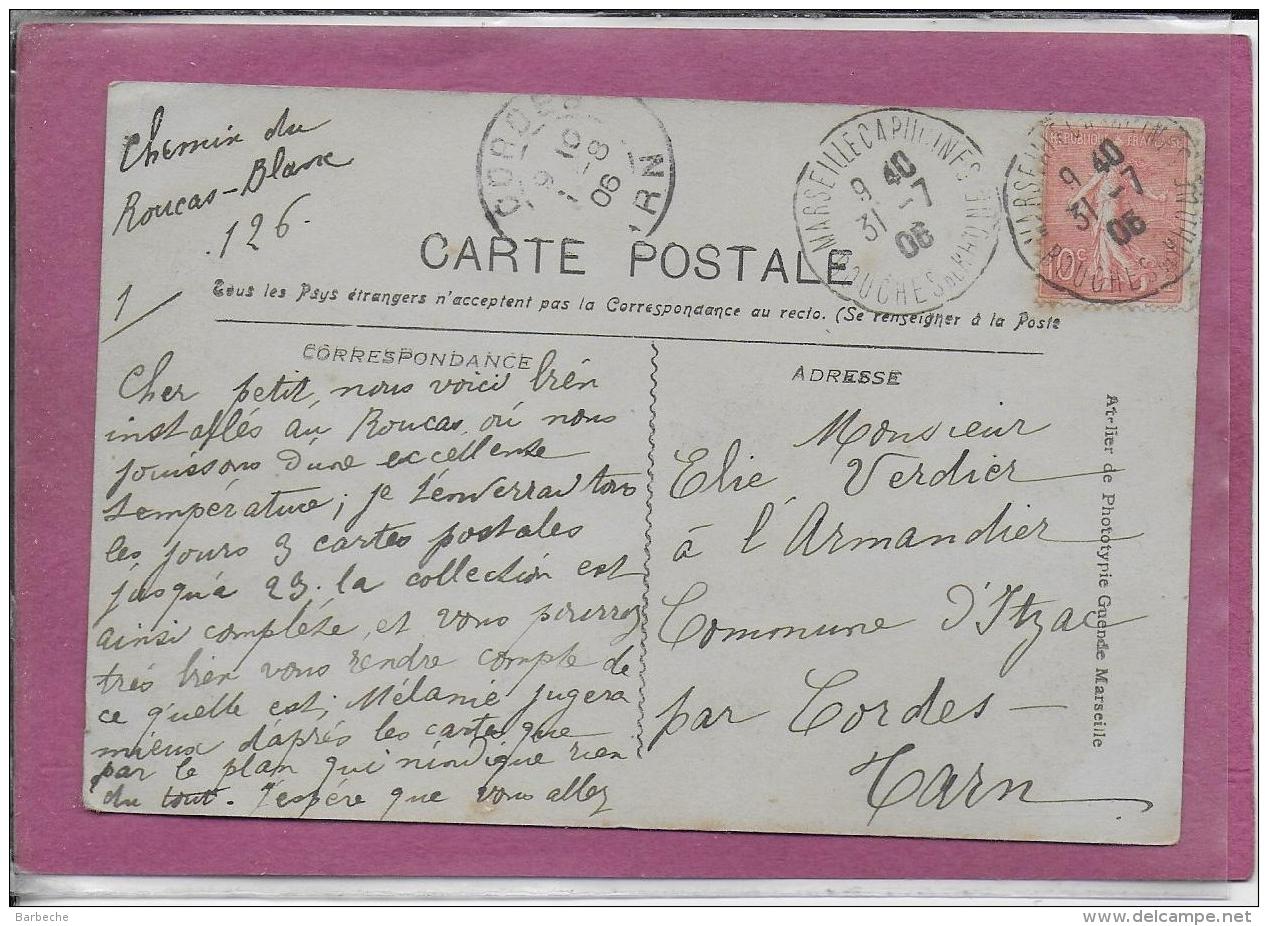 Chemin du
Roucas-Blanc
126.
1/
CORDES
9 10
1 -8
06
MARSEILLE CAPUCINES
9 40
31 -7
06
BOUCHES DU RHONE
REPUBLIQUE FRANÇAISE
9 40
31 -7
06
BOUCHES
10c
CARTE POSTALE
Tous les Pays étrangers n'acceptent pas la Correspondance au recto. (Se renseigner à la Poste
CORRESPONDANCE
Cher petit, nous voici bien
installés au Roucas, où nous
jouissons d'une excellente
température; je t'enverrai tous
les jours 3 cartes postales
jusqu'à 23. la collection est
ainsi complète, et vous pourrez
très bien vous rendre compte de
ce qu'elle est; Mélanie jugera
mieux d'après les cartes que
par le plan qui n'indique rien
du tout. J'espère que vous allez
ADRESSE
Monsieur
Elie Verdier
à l'Armandier
Commune d'Itzac
par Cordes -
Tarn
Atelier de Phototypie Guende Marseille
Barbeche
delcampe.net